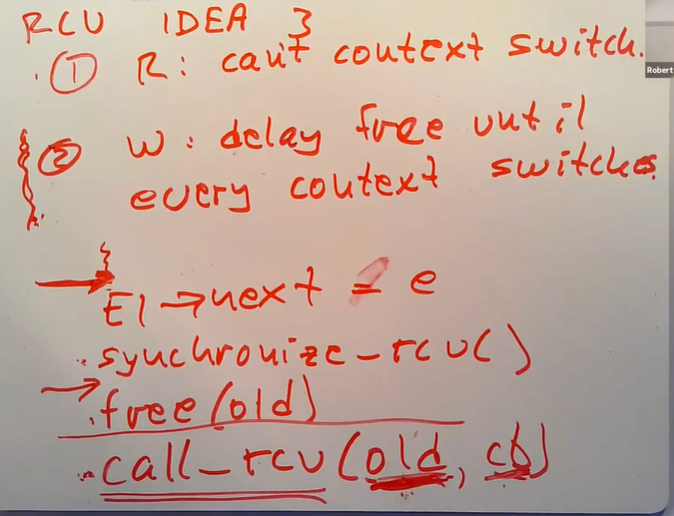 RCU IDEA 3
① R: can't context switch.
② W: delay free until
every context switches.
E1→next = e
synchronize-rcu()
free(old)
call-rcu(old, cb)
Robert